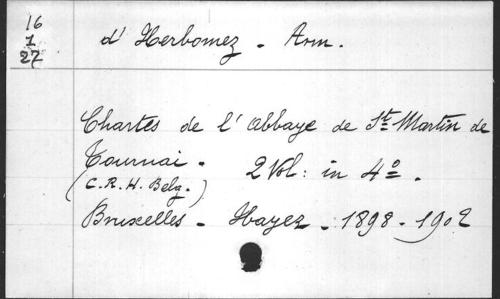 16
1
27
d'Herbomez - Arm.
Chartes de l'abbaye de St Martin de
Tournai - 2 Vol: in 4º.
(C.R.H. Belg.)
Bruxelles - Hayez - 1898 - 1902